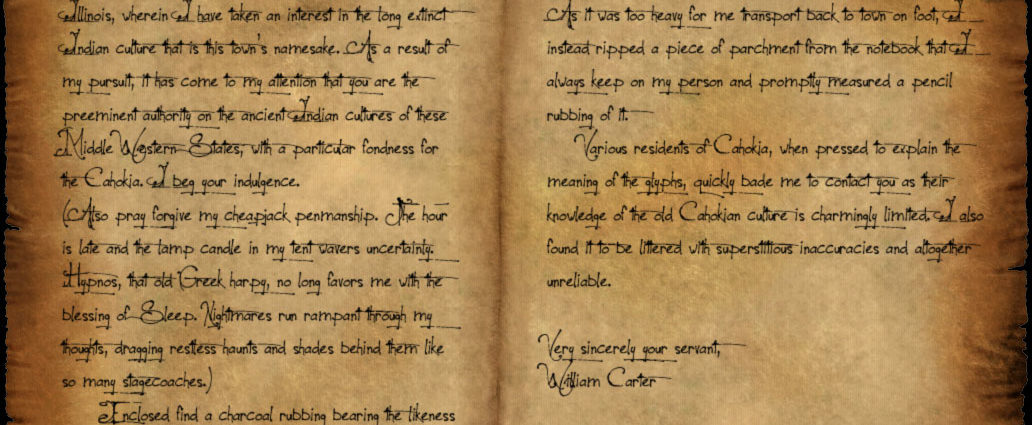 Illinois, wherein I have taken an interest in the long extinct
Indian culture that is this town's namesake. As a result of
my pursuit, it has come to my attention that you are the
preeminent authority on the ancient Indian cultures of these
Middle Western States, with a particular fondness for
the Cahokia. I beg your indulgence.
(Also pray forgive my cheapjack penmanship. The hour
is late and the lamp candle in my tent wavers uncertainly.
Hypnos, that old Greek harpy, no long favors me with the
blessing of Sleep. Nightmares run rampant through my
thoughts, dragging restless haunts and shades behind them like
so many stagecoaches.)
Enclosed find a charcoal rubbing bearing the likeness
As it was too heavy for me transport back to town on foot, I
instead ripped a piece of parchment from the notebook that I
always keep on my person and promptly measured a pencil
rubbing of it.
Various residents of Cahokia, when pressed to explain the
meaning of the glyphs, quickly bade me to contact you as their
knowledge of the old Cahokian culture is charmingly limited. I also
found it to be littered with superstitious inaccuracies and altogether
unreliable.
Very sincerely your servant,
William Carter